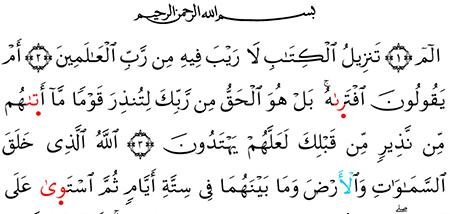 بسم الله الرحمن الرحيم
الٓمٓ ﴿١﴾ تَنزِيلُ ٱلْكِتَٰبِ لَا رَيْبَ فِيهِ مِن رَّبِّ ٱلْعَٰلَمِينَ ﴿٢﴾ أَمْ
يَقُولُونَ ٱفْتَرىٰهُ ۚ بَلْ هُوَ ٱلْحَقُّ مِن رَّبِّكَ لِتُنذِرَ قَوْمًا مَّآ أَتىٰهُم
مِّن نَّذِيرٍ مِّن قَبْلِكَ لَعَلَّهُمْ يَهْتَدُونَ ﴿٣﴾ ٱللَّهُ ٱلَّذِى خَلَقَ
ٱلسَّمَٰوَٰتِ وَٱلْأَرْضَ وَمَا بَيْنَهُمَا فِى سِتَّةِ أَيَّامٍ ثُمَّ ٱسْتَوىٰ عَلَى